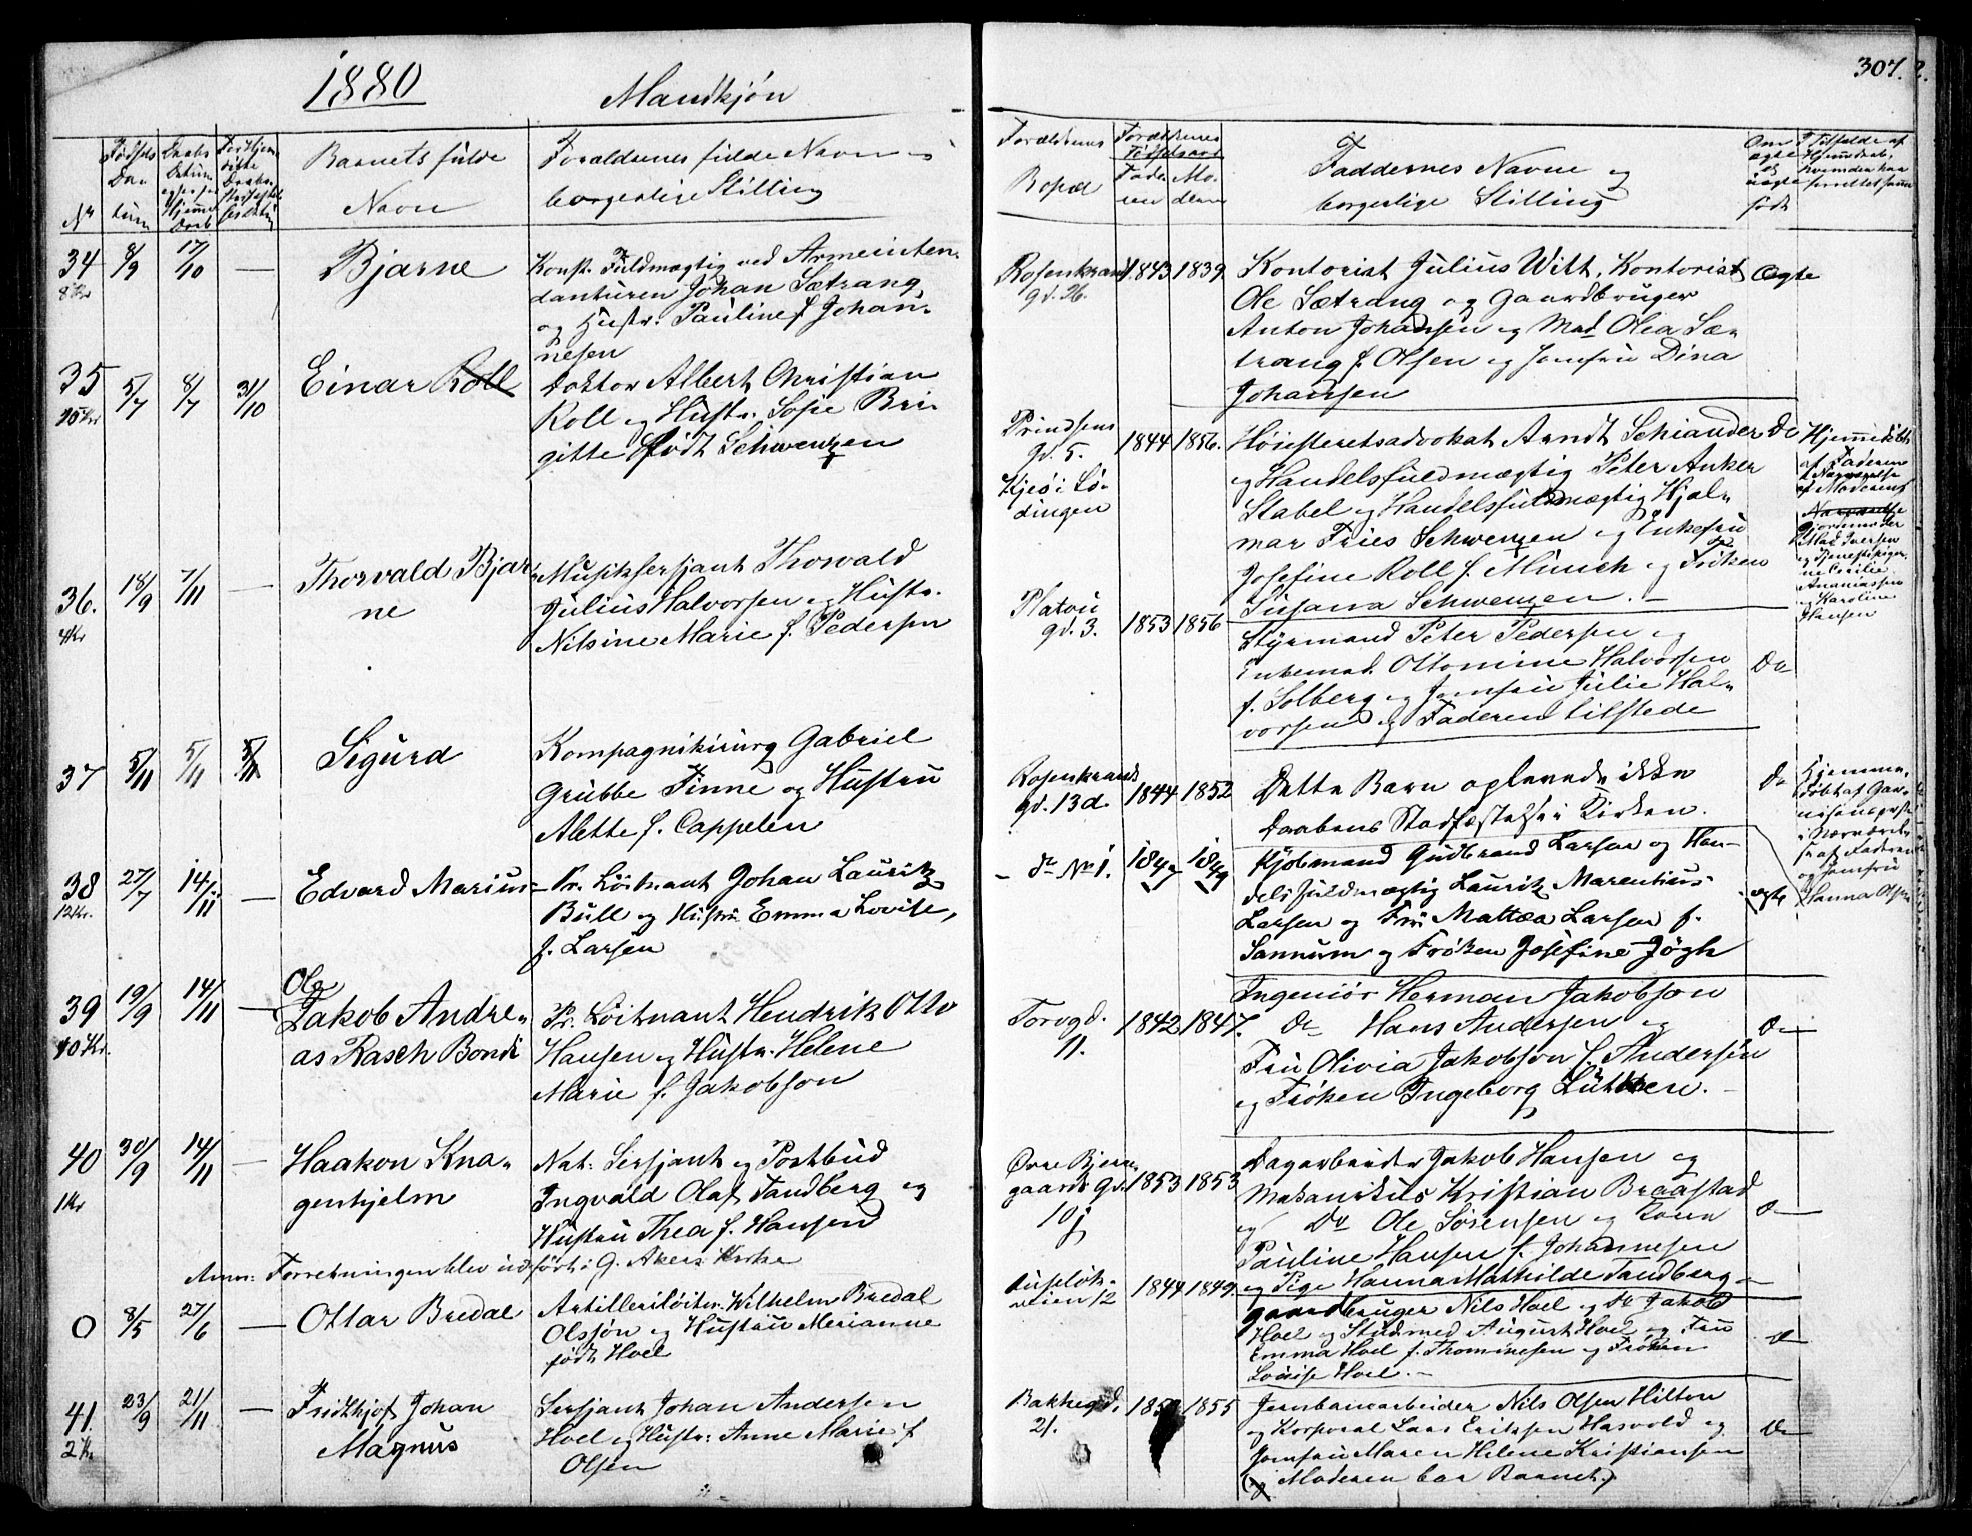 1880
Mandkjøn
307.
Nr
Fødsels Datum
Daabs Datum
Barnets fulde Navn
Forældrenes fulde Navn og borgerlige Stilling
Forældrenes Bopæl
Forældrenes Fødselsaar
Faderen
Moderen
Faddernes Navne og borgerlige Stilling
Om ægte og uægte født
34
8 Kr
8/9
17/10
—
Bjarne
Konst. Fuldmægtig ved Armeinten-
danturen Johan Sætrang
og Hustr. Pauline f Johan-
nesen
Rosenkrands
gd. 26.
1843
1839
Kontorist Julius Witt, Kontorist
Ole Sætrang og Gaardbruger
Anton Johansen og Mad Olea Sæ-
trang f. Olsen og Jomfru Dina
Johansen
Ægte
35
5/7
8/7
31/10
Einar Roll
Doktor Albert Christian
Roll og Hustr. Sofie Bri-
gitte født Schwenzen
Prindsens
gd. 5.
Kjeø i Lø-
dingen
1844
1856.
Høiesteretsadvokat Arndt Schiander
og Handelsfuldmægtig Peter Anker
Stabel og Handelsfuldmægtig Hjal-
mar Fries Schwenzen og Enkefru
Josefine Roll f. Münch og Frøken
Susana Schwenzen. —
Do
Hjemmedøbt
af Faderen
i Nærværelse
af Moderen
Nærværelse
Gjordmoder
Mad Iversen
og Tjenestepiger-
ne Cecilie
Ananiassen
og Karoline
Hansen
36.
4 Kr
18/9
7/11
—
Thorvald Bjar-
ne
Musiksersjant Thorvald
Julius Halvorsen og Hustr.
Nilsine Marie f. Pedersen
Platou
gd. 3.
1853
1856
Styrmand Peter Pedersen og
Enkemad. Ottomine Halvorsen
f. Solberg og Jomfru Julie Hal-
vorsen og Faderen tilstede
Do
37
5/11
5/11
5/11
Sigurd
Kompagnikirurg Gabriel
Grubbe Finne og Hustru
Alette f. Cappelen
Rosenkrands
gd. 13d.
1844
1852
Dette Barn oplevede ikke
Daabens Stadfæstelse i Kirken.
Do
Hjemme-
døbt af Gar-
nisonsprest
i Nærværel-
se af Faderen
og Jomfru
Hanna Olsen
38
12 Kr.
27/7
14/11
—
Edvard Marius
Pr. Løitnant Johan Lauritz
Bull og Hustru Emma Lovise,
f. Larsen
do No 1.
1847
1849
Kjøbmand Gudbrand Larsen og Han-
delsfuldmægtig Lauritz Marentius
Larsen og Fru Mattea Larsen f.
Sannum og Frøken Josefine Jøgh
ægte
39
40 Kr.
19/9
14/11
—
Ole
Jakob Andre-
as Rasch Bonde
Pr. Løitnant Hendrik Otto
Hansen og Hustr. Helene
Marie f. Jakobson
Torvgd.
11.
1842
1847.
Ingeniør Herman Jakobson
Do Hans Andersen og
Fru Olivia Jakobson f. Andersen
og Frøken Ingeborg Lütken. —
D—
40
1 Kr
30/9
14/11
—
Haakon Kna-
genhjelm
Nat: Sersjant og Postbud
Ingvald Olaf Tandberg og
Hustru Thea f. Hansen
Øvre Bjerre-
gaards gd.
10j
1853
1853
Dagarbeider Jakob Hansen og
Mekanikus Kristian Braastad
og Do Ole Sørensen og Kone
Pauline Hansen f. Johannesen
og Pige Hanna Mathilde Tandberg —
D—
Anm: Forretningen blev udført i G. Akers Kirke
0
8/5
27/6
—
Ottar Bredal
Artilleriløitn. Wilhelm Bredal
Olssøn og Hustru Merianne
født Hoel
veien 12
1844
1849.
Gaardbruger Nils Hoel og Do Jakob
Hoel og Stud. med August Hoel og Fru
Emma Hoel f. Thommesen og Frøken
Lovise Hoel. —
D—
41.
2 Kr
23/9
21/11
—
Fridthjof Johan
Magnus
Sersjant Johan Andersen
Hoel og Hustr: Anne Marie f
Olsen
Bakkegd.
21.
1855
Jernbanearbeider Nils Olsen Hilton
og Korporal Lars Eriksen Hasvold og
Jomfru Maren Helene Kristiansen
(og Moderen bar Barnet.)
D—